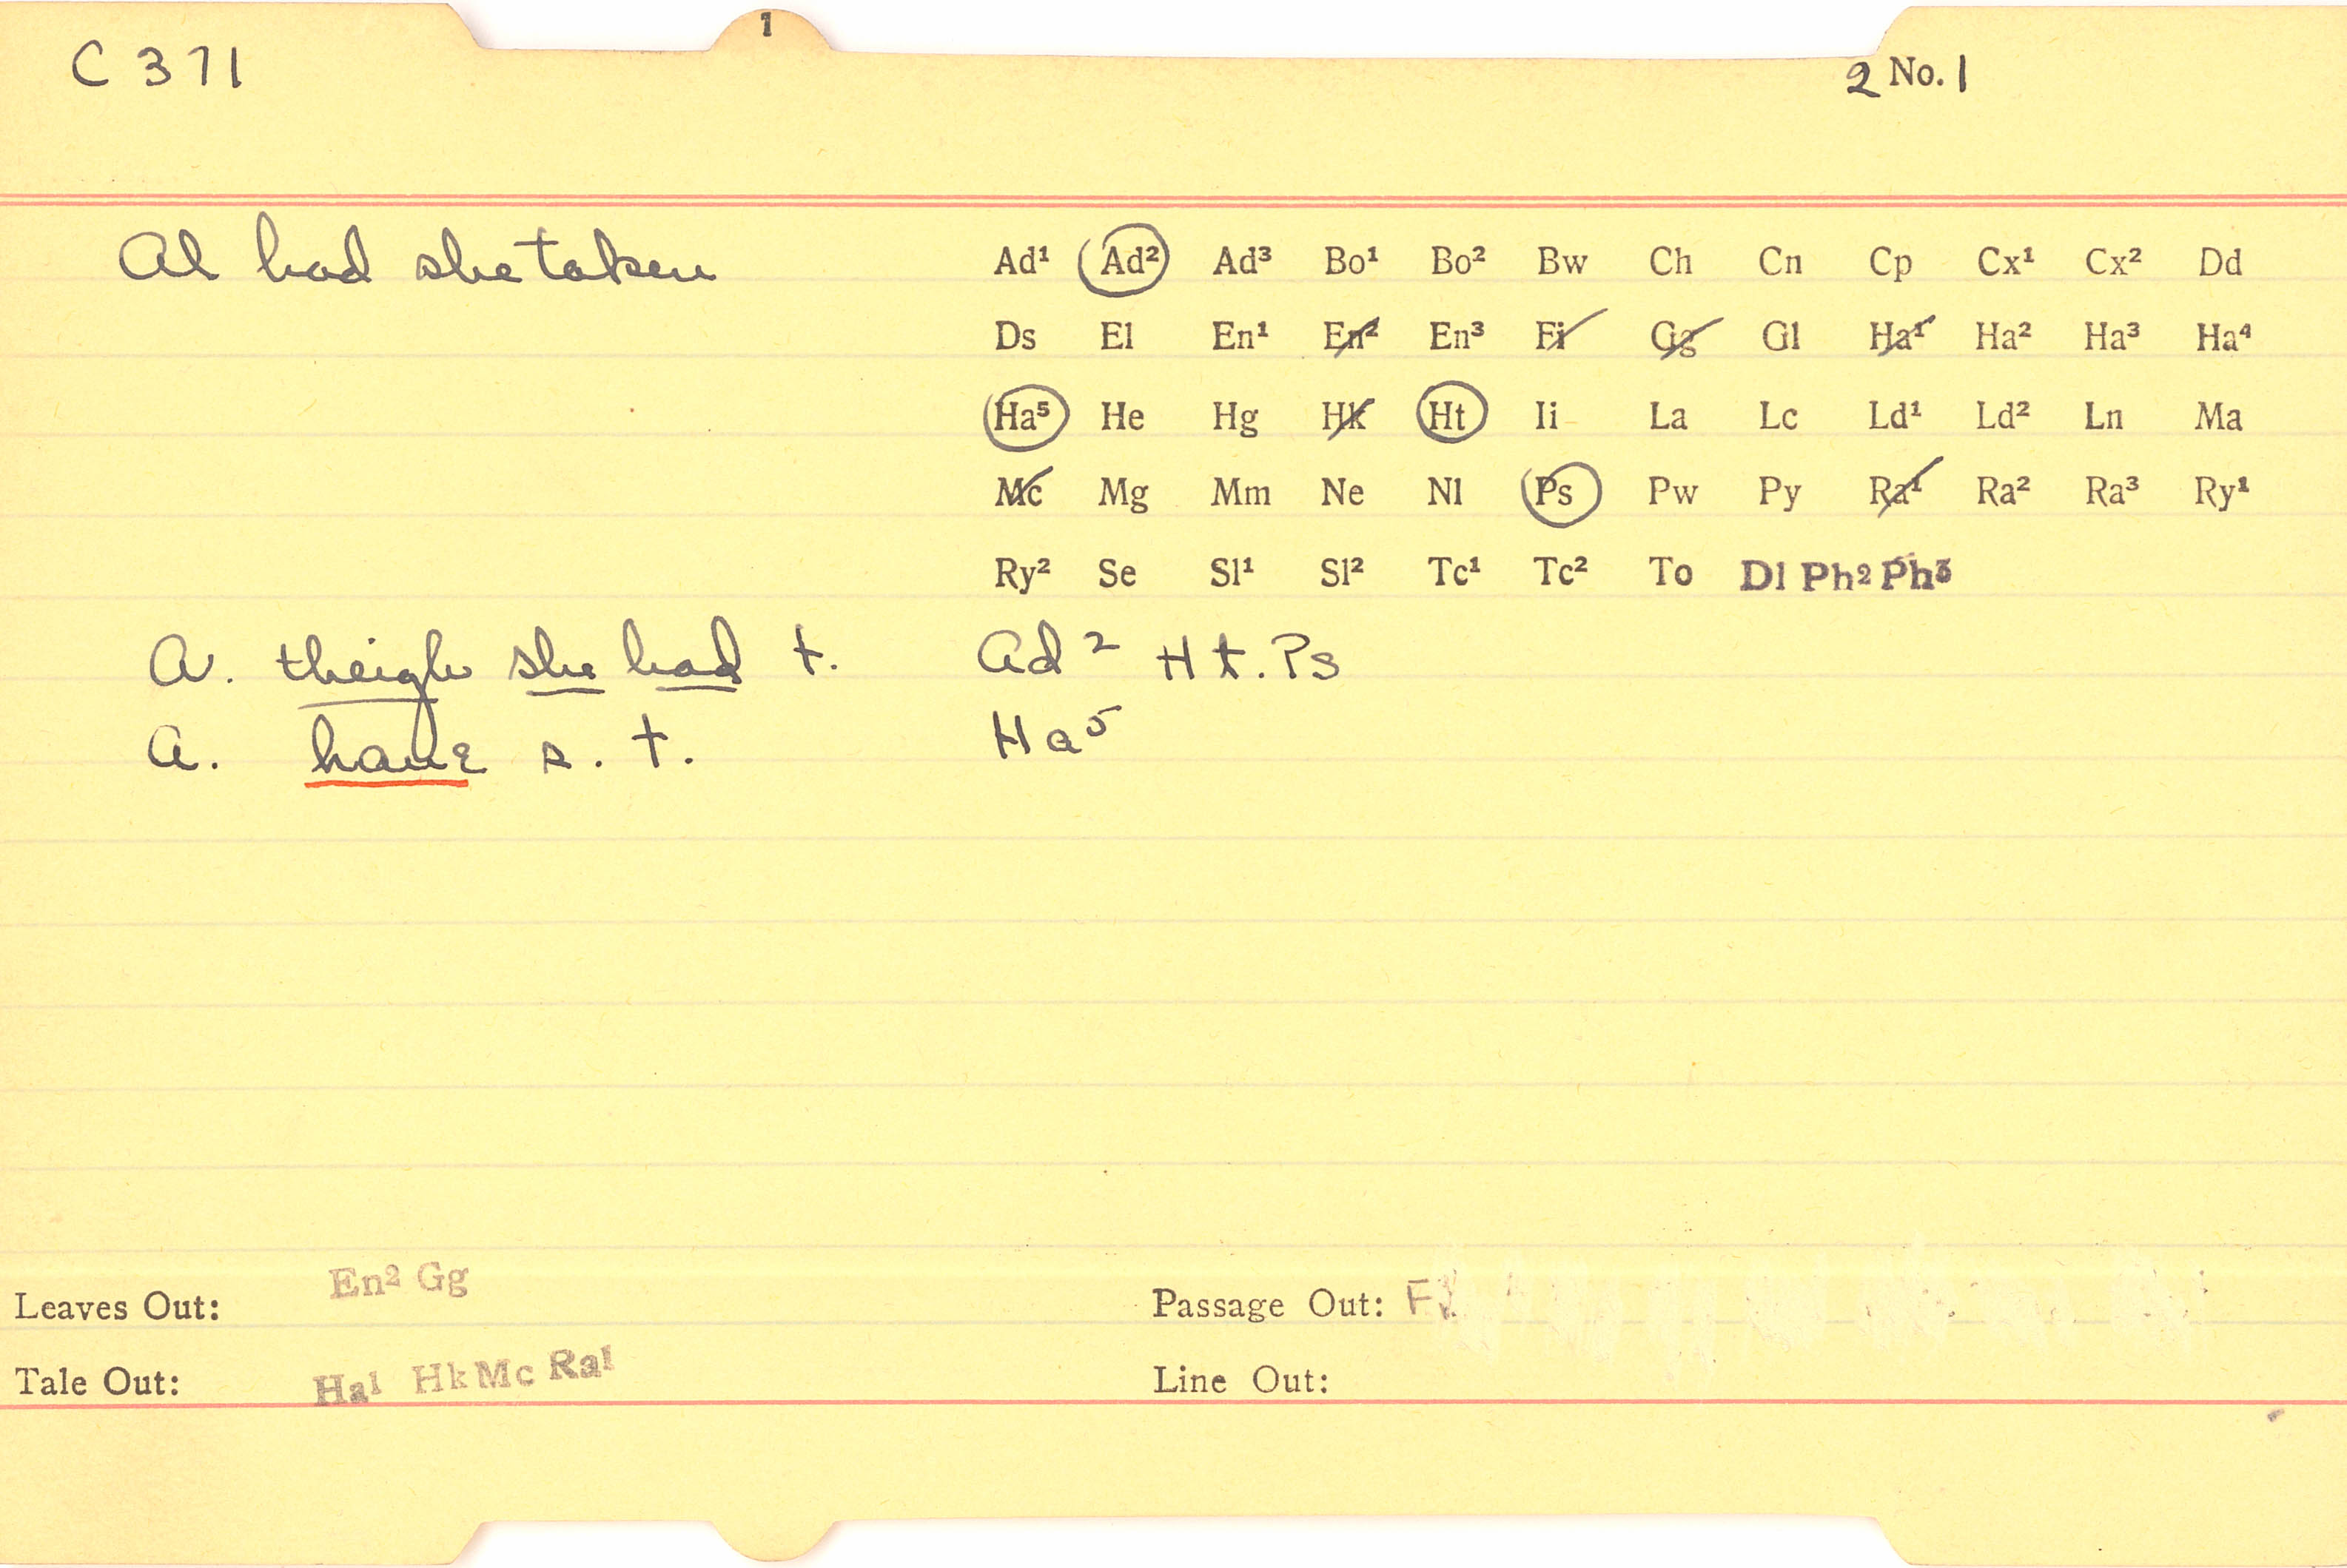 1
C 371
2 No. 1
Al had she taken
Ad¹ Ad² Ad³ Bo¹ Bo² Bw Ch Cn Cp Cx¹ Cx² Dd
Ds El En¹ En² En³ Fi Gg Gl Ha¹ Ha² Ha³ Ha⁴
Ha⁵ He Hg Hk Ht Ii La Lc Ld¹ Ld² Ln Ma
Mc Mg Mm Ne Nl Ps Pw Py Ra¹ Ra² Ra³ Ry¹
Ry² Se Sl¹ Sl² Tc¹ Tc² To Dl Ph² Ph³
A. theigh she had t. Ad² Ht. Ps
A. haue s. t. Ha⁵
Leaves Out: En² Gg
Passage Out: Fi
Tale Out: Ha¹ Hk Mc Ra¹
Line Out: